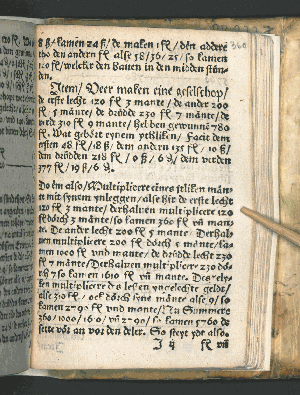 8 ß/ kamen 24 ß/ de maken 1 fl/ den
tho den andern fl alse 58/36/25/ so kamen
120 fl/ welcker den Bauen in den midden stün-
den.
Item/ Veer maken eine geselschop/
de erste lecht 120 fl 3 mante/ de ander 200
fl 5 mante/ de drüdde 230 fl 7 mante/ de
verde 310 fl 9 mante/ hebben gewunnē 780
fl. Wat gehört eynem ytliken/ Facit dem
ersten 48 fl/18 ß/ dem andern 135 fl/ 10 ß/
dem drüdden 218 fl/ 0 ß/ 6 ₰/ dem verden
377 fl/ 19 ß/ 6 ₰.
Do em also/ Multiplicere eines itliken mān-
te mit synem ynleggen/ alse hir de erste lecht
120 fl 3 mante/ derhaluen multiplicere 120
fl dörch 3 mānte/ so kamen 360 fl vn̄ man-
te. De ander lecht 200 fl 5 mante/ Derhal-
uen multiplicere 200 fl dörch 5 mante/ ka-
men 1000 fl vnd mante/ de drüdde lecht 230
fl 7 mante/ Derhaluen multiplicere 230 dör-
ch 7 so kamen 1610 fl vn̄ mante. Des
ken multiplicere des lesten yngelechte geldt/
alse 310 fl/ ock dörch syne mānte alse 9/ so
kamen 2790 fl vnd mante/ Nu Summere
360/1000/1610/ vn̄ 2790/ so kamen 5760 de
sette vör an vor den deler. So steyt yde also.
fl vn̄